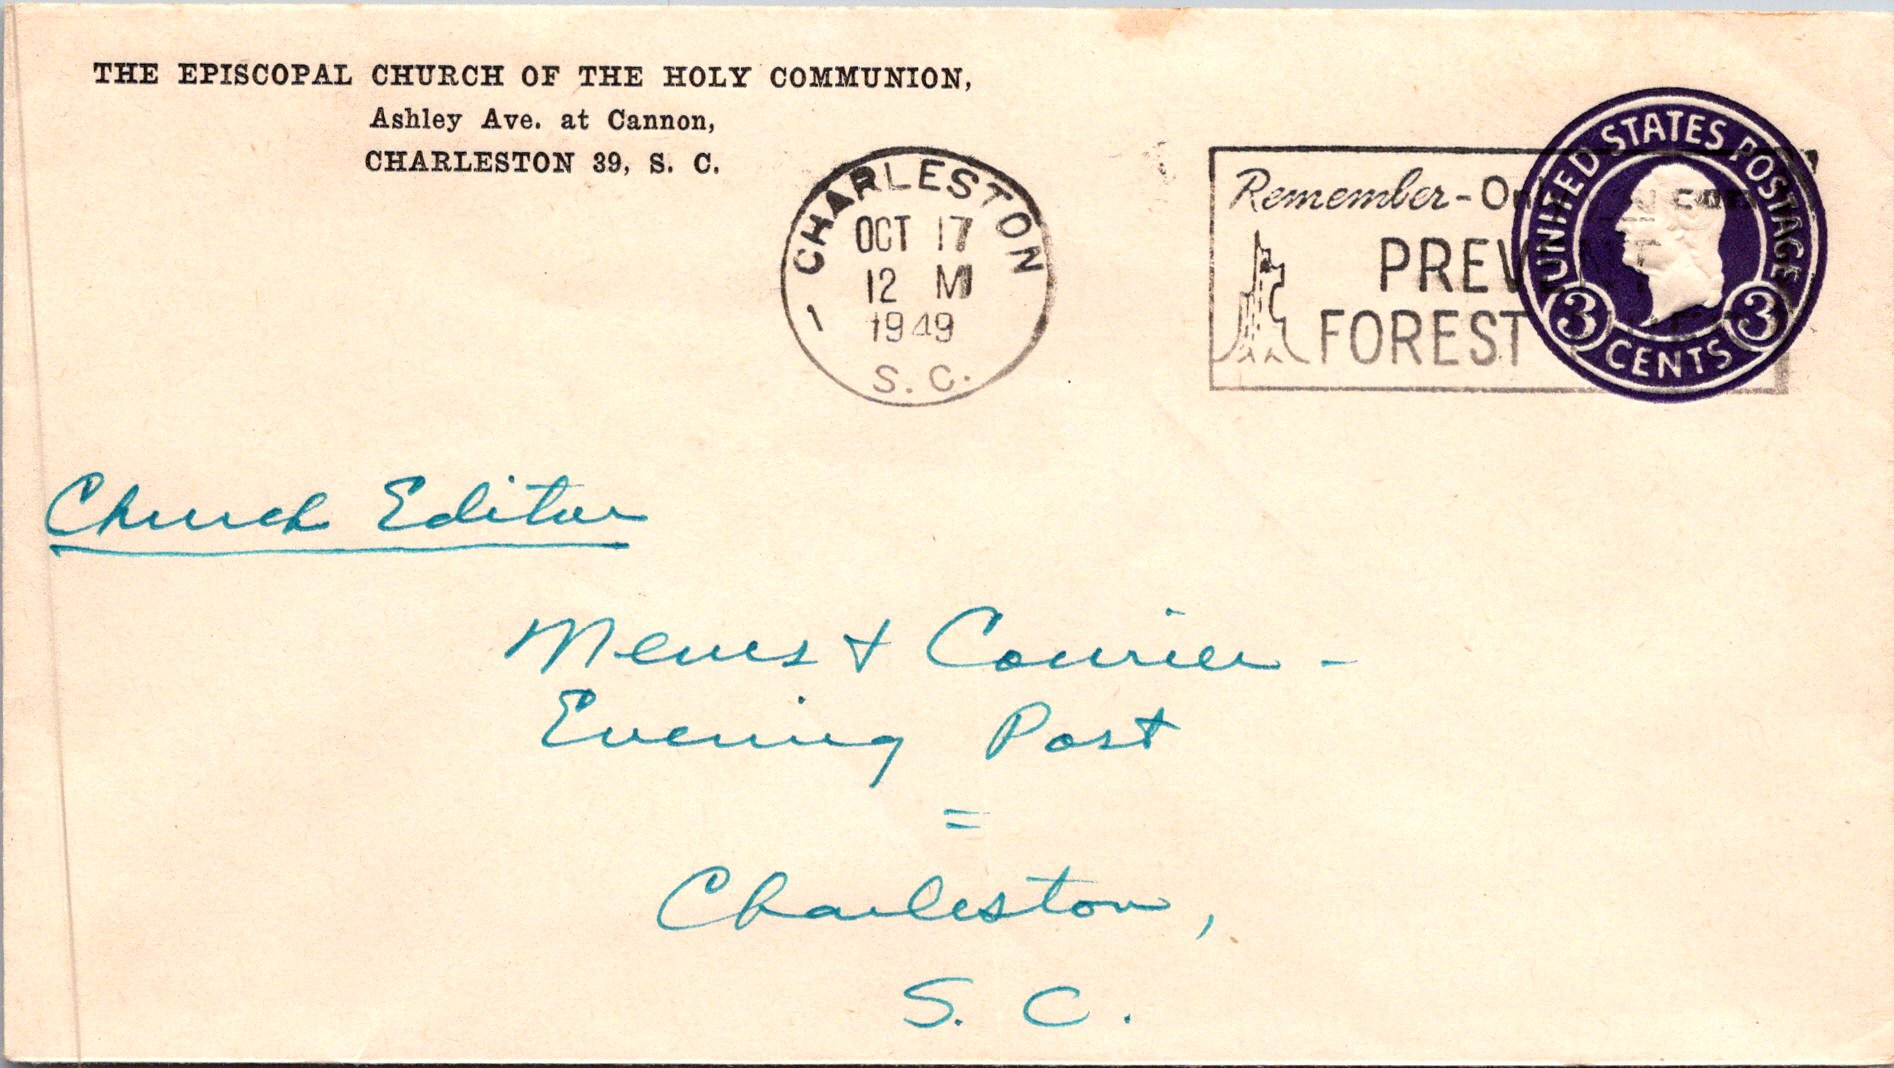 THE EPISCOPAL CHURCH OF THE HOLY COMMUNION,
Ashley Ave. at Cannon,
CHARLESTON 39, S. C.
CHARLESTON
OCT 17
12 M
1949
S. C.
1
Remember - Only you can
PREVENT
FOREST
UNITED STATES POSTAGE
3 CENTS 3
Church Editor
News & Courier -
Evening Post
=
Charleston,
S. C.